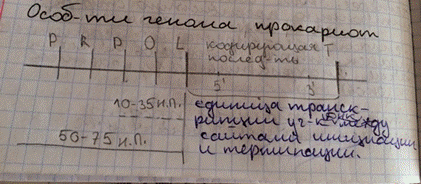 Особ-ти генома прокариот
P R P O L кодирующая T
послед-ть
5' 3'
10-35 н.п.
единица транск-
рипции уч-к ДНК между
50-75 н.п.
сайтами инициации
и терминации.